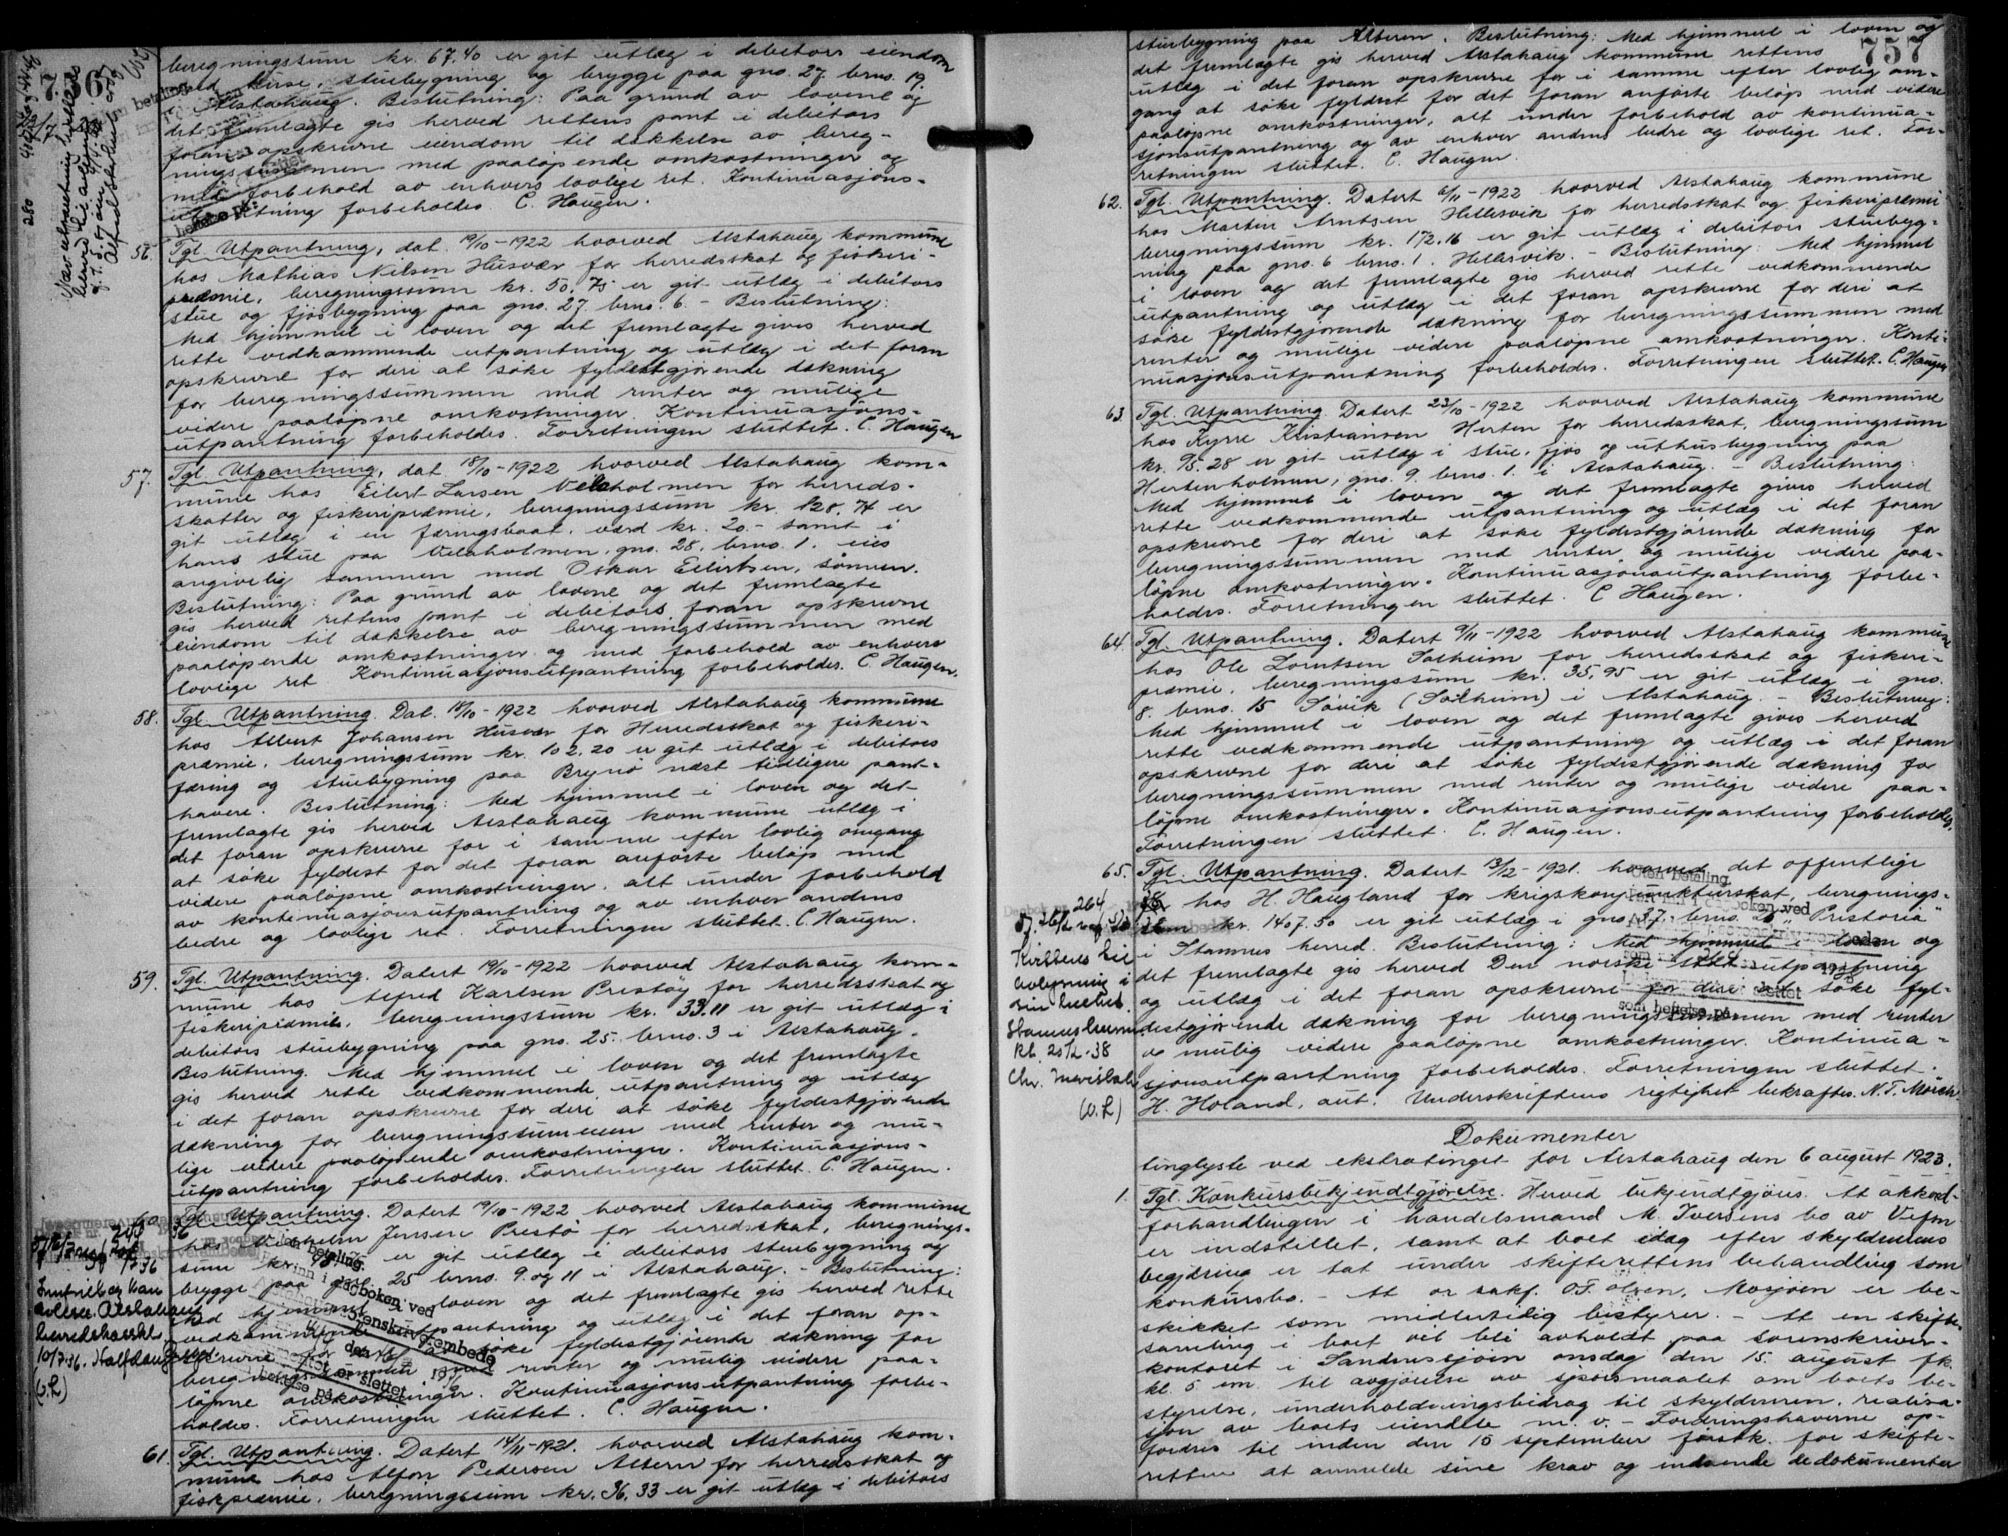 756
beregningssum kr. 67.40 er git utlæg i debitors eiendom
stuebygning og brygge paa gno. 27 brno. 19
i Alstahaug. Beslutning: Paa grund av lovene og
det fremlagte gis herved rettens pant i debitors
foran opskrevne eiendom til dækkelse av bereg-
ningssummen med paaløpende omkostninger og
med forbehold av enhvers lovlige ret. Kontinuasjons-
utpantning forbeholdes. C. Haugen.
56. Tgl. Utpantning, dat. 19/10-1922 hvorved Alstahaug kommune
hos Mathias Nilsen Husvær for herredsskat og fiskeri-
præmie, beregningssum kr. 50.75 er git utlæg i debitors
stue og fjøsbygning paa gno. 27 brno. 6. - Beslutning:
Med hjemmel i loven og det fremlagte gives herved
rette vedkommende utpantning og utlæg i det foran
opskrevne for deri at søke fyldestgjørende dækning
for beregningssummen med renter og mulige
videre paaløpne omkostninger. Kontinuasjons-
utpantning forbeholdes. Forretningen sluttet. C. Haugen
57. Tgl. Utpantning, dat. 18/10-1922 hvorved Alstahaug kom-
mune hos Eilert Larsen Velholmen for herreds-
skatter og fiskeripræmie, beregningssum kr. 128.74 er
git utlæg i en færingsbaat, værd kr. 20.- samt i
hans stue paa Velaholmen, gno. 28, brno. 1. eies
angivelig sammen med Oskar Eilertsen, sønnen.
Beslutning: Paa grund av lovene og det fremlagte
gis herved rettens pant i debitors foran opskrevne
eiendom til dækkelse av beregningssummen med
paaløpende omkostninger og med forbehold av enhvers
lovlige ret. Kontinuasjonsutpantning forbeholdes. C. Haugen.
58. Tgl. Utpantning. Dat. 18/10-1922 hvorved Alstahaug kommune
hos Albert Johansen Husvær for Herredsskat og fiskeri-
præmie, beregningssum kr. 102.20 er git utlæg i debitors
færing og stuebygning paa Brynø næst tidligere pant-
havere. Beslutning: Med hjemmel i loven og det
fremlagte gis herved Alstahaug kommune utlæg i
det foran opskrevne for i samme efter lovlig omgang
at søke fyldest for det foran anførte beløp med
videre paaløpne omkostninger, alt under forbehold
av kontinuasjonsutpantning og av enhver andens
bedre og lovlige ret. Forretningen sluttet. C. Haugen.
59. Tgl. Utpantning. Datert 19/10-1922 hvorved Alstahaug kom-
mune hos Alfred Karlsen Prestøy for herredsskat og
fiskeripræmie, beregningssum kr. 33.11 er git utlæg i
debitors stuebygning paa gno. 25. brno. 3 i Alstahaug.
Beslutning. Med hjemmel i loven og det fremlagte
gis herved rette vedkommende utpantning og utlæg
i det foran opskrevne for deri at søke fyldestgjørende
dækning for beregningssummen med renter og mu-
lige videre paaløpende omkostninger. Kontinuasjons-
utpantning forbeholdes. Forretningen sluttet. C. Haugen.
60. Tgl. Utpantning. Datert 19/10-1922 hvorved Alstahaug kommune
hos Vilhelm Jensen Prestø for herredsskat, beregnings-
sum kr. er git utlæg i debitors stuebygning og
brygge paa gno. 25 brno. 9. og 11 i Alstahaug. - Beslutning:
Med hjemmel i loven og det fremlagte gis herved rette
vedkommende utpantning og utlæg i det foran op-
skrevne for deri at søke fyldestgjørende dækning for
beregningssummen med renter og mulig videre paa-
løpne omkostninger. Kontinuasjonsutpantning forbe-
holdes. Forretningen sluttet. C. Haugen.
61. Tgl. Utpantning. Datert 14/11-1921. hvorved Alstahaug kom-
mune hos Alfon Pedersen Alteren for herredsskat og
fiskpræmie, beregningssum kr. 96.33 er git utlæg i debitors
757
stuebygning paa Alteren. Beslutning: Med hjemmel i loven og
det fremlagte gis herved Alstahaug kommune rettens
utlæg i det foran opskrevne for i samme efter lovlig om-
gang at søke fyldest for det foran anførte beløp med videre
paaløpne omkostninger, alt under forbehold av kontinua-
sjonsutpantning og av enhver andens bedre og lovlige ret. For-
retningen sluttet. C. Haugen.
62. Tgl. Utpantning. Datert 6/11-1922 hvorved Alstahaug kommune
hos Martin Arntsen Hellesvik for herredsskat og fiskeripræmie
beregningssum kr. 172.16 er git utlæg i debitors stuebyg-
ning paa gno. 6 brno. 1. Hellesvik. - Beslutning: Med hjemmel
i loven og det fremlagte gis herved rette vedkommende
utpantning og utlæg i det foran opskrevne for deri at
søke fyldestgjørende dækning for beregningssummen med
renter og mulige videre paaløpne omkostninger. Konti-
nuasjonsutpantning forbeholdes. Forretningen sluttet. C. Haugen
63. Tgl. Utpantning. Datert 23/10-1922 hvorved Alstahaug kommune
hos Kyrre Kristiansen Herten for herredsskat, beregningssum
kr. 95.28 er git utlæg i stue, fjøs og uthusbygning paa
Hertenholmen, gno. 9. brno. 1. i Alstahaug. - Beslutning:
Med hjemmel i loven og det fremlagte gives herved
rette vedkommende utpantning og utlæg i det foran
opskrevne for deri at søke fyldestgjørende dækning for
beregningssummen med renter og mulige videre paa-
løpne omkostninger. Kontinuasjonsutpantning forbe-
holdes. Forretningen sluttet. C Haugen.
64. Tgl. Utpantning. Datert 9/11-1922 hvorved Alstahaug kommune
hos Ole Lorntsen Solheim for herredsskat og fiskeri-
præmie, beregningssum kr. 35,95 er git utlæg i gno.
8. brno. 15 Søvik (Solheim) i Alstahaug. - Beslutning:
Med hjemmel i loven og det fremlagte gives herved
rette vedkommende utpantning og utlæg i det foran
opskrevne for deri at søke fyldestgjørende dækning for
beregningssummen med renter og mulige videre paa-
løpne omkostninger. Kontinuasjonsutpantning forbeholdes.
Forretningen sluttet. C. Haugen.
65. Tgl. Utpantning. Datert 13/12-1921. hvorved det offentlige
hos H. Haugland for krigskonjunkturskat, beregnings-
sum kr. 1407.50 er git utlæg i gno. 37. brno. 26 "Pristoria"
i Stamnes herred. Beslutning: Med hjemmel i loven og
det fremlagte gis herved Den norske stat utpantning
og utlæg i det foran opskrevne for deri at søke fyl-
destgjørende dækning for beregningssummen med renter
og mulig videre paaløpne omkostninger. Kontinua-
sjonsutpantning forbeholdes. Forretningen sluttet.
H. Holand, aut. Underskriftens rigtighet bekræftes. N. T. Mörch.
Dokumenter
tinglyste ved ekstratinget for Alstahaug den 6 august 1923.
1. Tgl. Konkursbekjendtgjørelse. Herved bekjendtgjøres. At akkord-
forhandlingen i handelsmand M. Iversens bo av Vefsn
er indstillet, samt at boet idag efter skyldnerens
begjæring er tat under skifterettens behandling som
konkursbo. - At or. sakf. O.T. Olsen, Mosjøen er be-
skikket som midlertidig bestyrer. - At en skifte-
samling i boet vil bli avholdt paa sorenskriver-
kontoret i Sandnessjøen onsdag den 15. august fk.
kl. 5 em. til avgjørelse av spørsmaalet om boets be-
styrelse, underholdningsbidrag til skyldneren, realisa-
sjon av boets eiendele m. v. - Fordringshaverne op-
fordres til inden den 15 september førstk. for skifte-
retten at anmelde sine krav og indsende de dokumenter